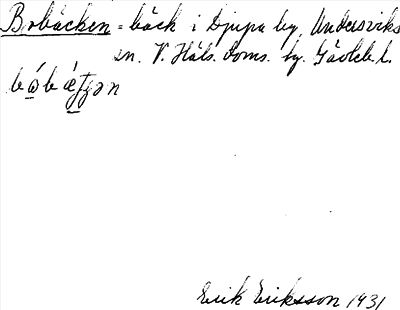 Bobäcken = bäck i Djupa by, Undersviks
sn. V. Häls. doms. hg. Gävleb. l.
Erik Eriksson 1931